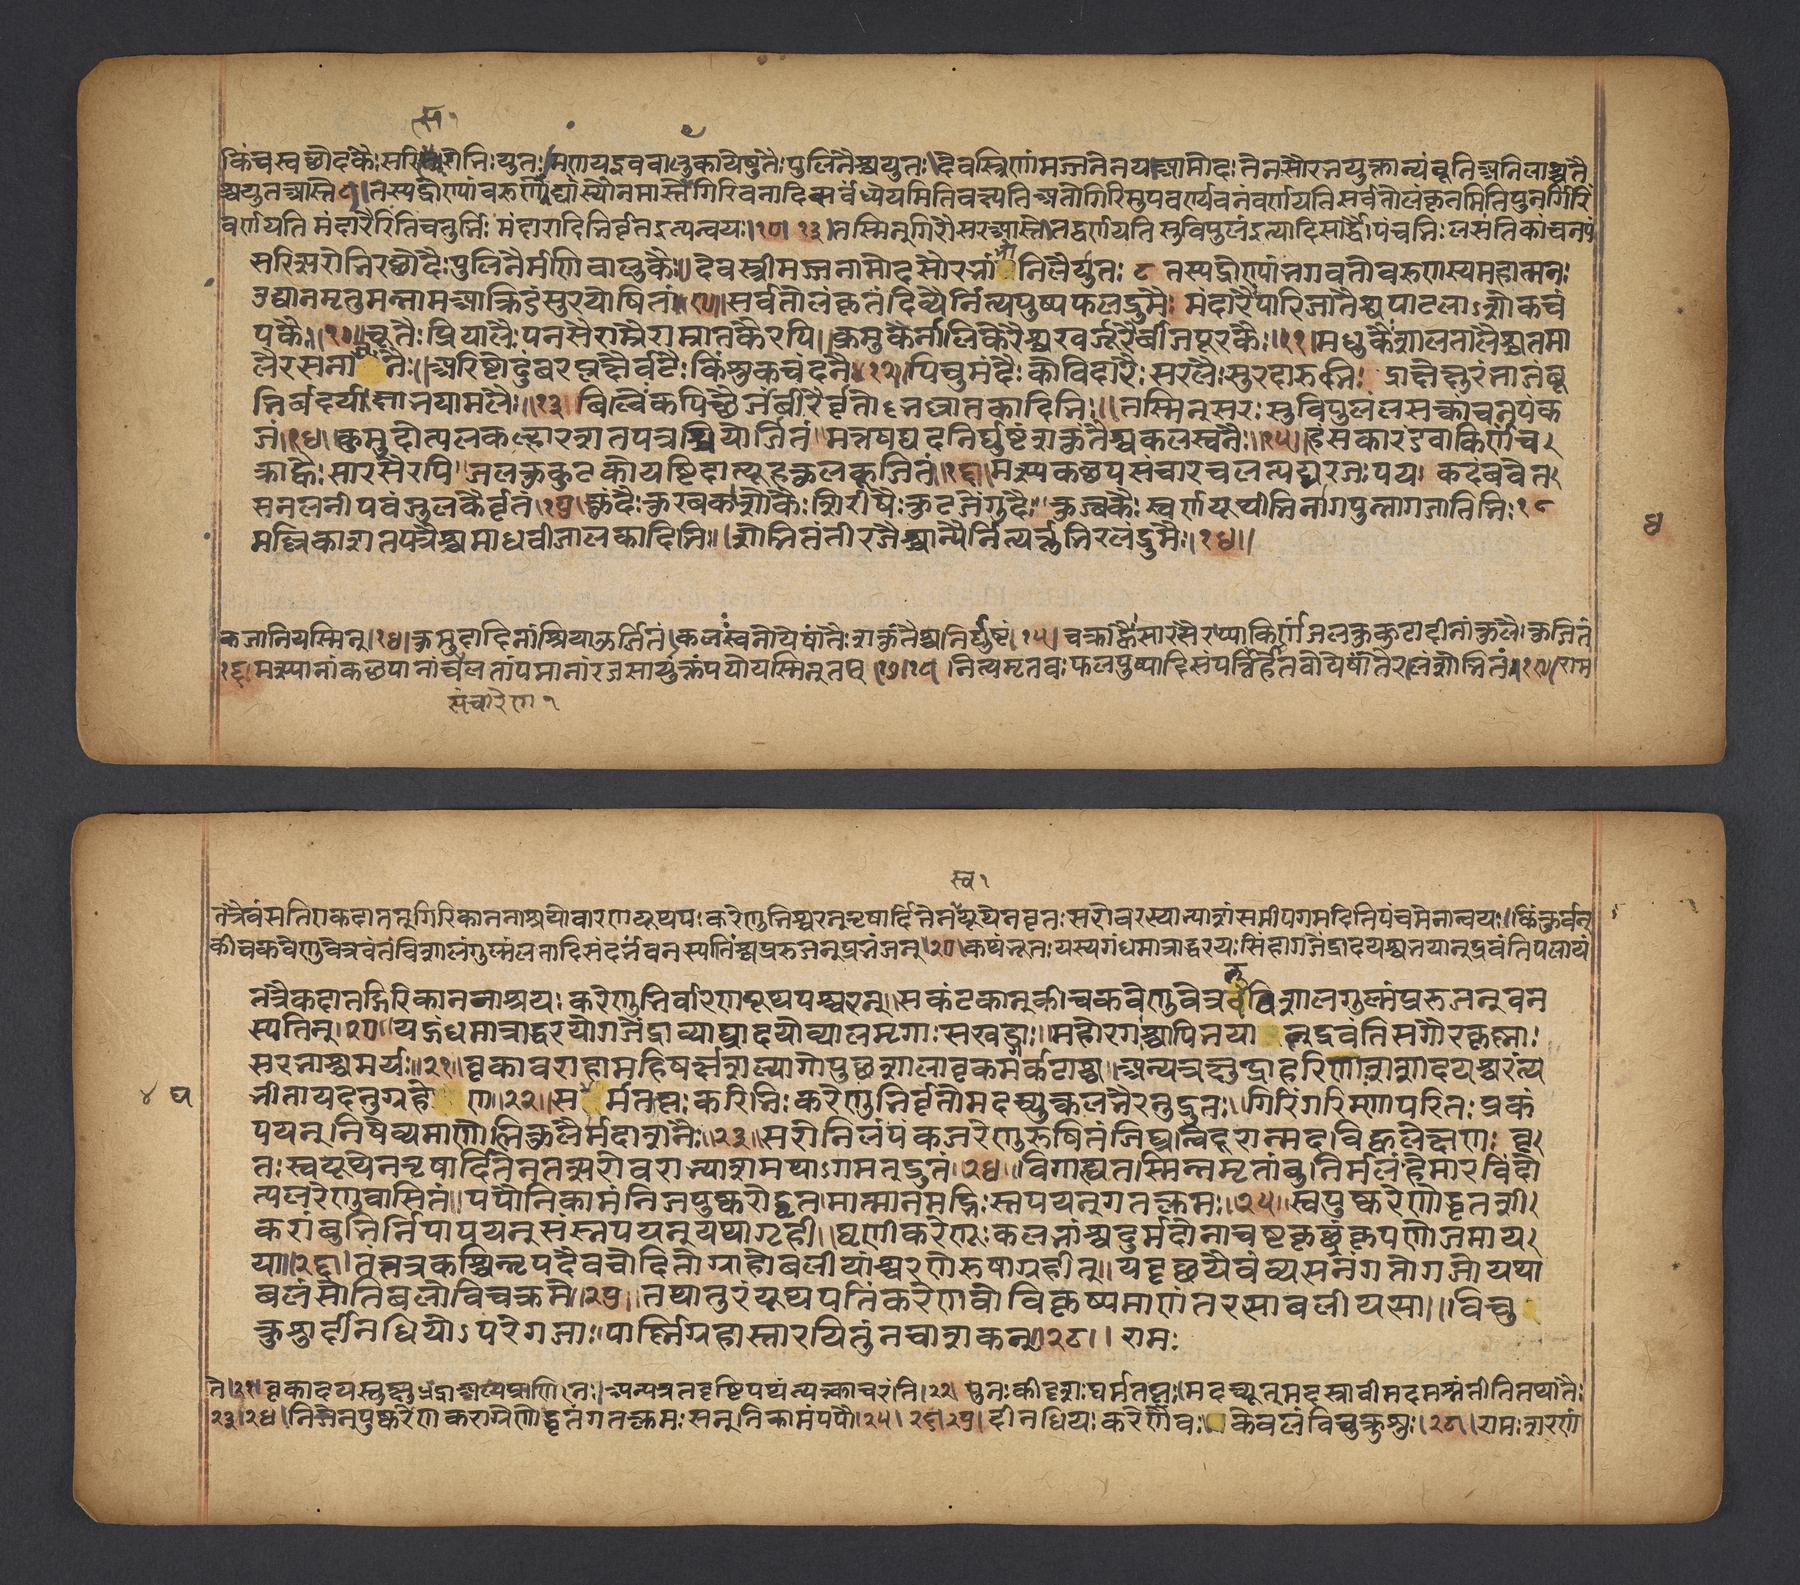 स १
किंच स्वच्छोदकैः सरिद्भिः सरोभिः युतः मणय इव वालुका येषु तैः पुलिनैश्च युतः देवस्त्रीणां मज्जनेन य आमोदः तेन सौरभयुक्तान्यंबूनि अनिलाश्च तै
श्च युत आस्ते ८ तस्य द्रोण्यां वरुणोद्यानमास्ते गिरिवनादि सर्वं ध्येयमिति वक्ष्यति अतो गिरिमुपवर्ण्य वनं वर्णयति सर्वतोलंकृतमिति पुनर्गिरिं
वर्णयति मंदारैरिति चतुर्भिः मंदारादिभिर्वृत इत्यन्वयः ।१०।१३। तस्मिन् गिरौ सर आस्ते तद्वर्णयति सुविपुलं इत्यादि सार्द्धैः पंचभिः लसंति कांचनपं
सरित्सरोभिरच्छोदैः पुलिनैर्मणिवालुकैः ॥ देवस्त्रीमज्जनामोदसौरभांब्वनिलैर्युतः ८ तस्य द्रोण्यां भगवतो वरुणस्य महात्मनः
उद्यानमृतुमन्नाम आक्रीडं सुरयोषितां ॥९॥ सर्वतोलंकृतं दिव्यैर्नित्यपुष्पफलद्रुमैः मंदारैः पारिजातैश्च पाटलाऽशोकचं
पकैः ॥१०॥ चूतैः प्रियालैः पनसैराम्रैराम्रातकैरपि ॥ क्रमुकैर्नालिकेरैश्च खर्जूरैर्बीजपूरकैः ॥११॥ मधुकैः शालतालैश्च तमा
लैरसनार्जुनैः ॥ अरिष्टोदुंबरप्लक्षैर्वटैः किंशुकचंदनैः ॥१२॥ पिचुमंदैः कोविदारैः सरलैः सुरदारुभिः द्राक्षेक्षुरंभाजंबू
भिर्बदर्यक्षाभयामलैः ॥१३ बिल्वैः कपित्थैर्जंबीरैर्वृतो भल्लातकादिभिः ॥ तस्मिन् सरः सुविपुलं लसत्कांचनपंक
जं ॥१४॥ कुमुदोत्पलकल्हारशतपत्रश्रियोर्जितं मत्तषट्पदनिर्घुष्टं शकुंतैश्च कलस्वनैः ॥१५॥ हंसकारंडवाकीर्णं च
क्राह्वैः सारसैरपि जलकुक्कुटकोयष्टिदात्यूहकुलकूजितं ॥१६॥ मत्स्यकच्छपसंचारचलत्पद्मरजः पयः कदंबवेत
सनलनीपवंजुलकैर्वृतं ॥१७ कुंदैः कुरबकाशोकैः शिरीषैः कुटजेंगुदैः कुब्जकैः स्वर्णयूथीभिर्नागपुन्नागजातिभिः १८
मल्लिकाशतपत्रैश्च माधवीजालकादिभिः ॥ शोभितं तीरजैश्चान्यैर्नित्यर्तुभिरलं द्रुमैः ।१९॥
कजानि यस्मिन् ॥१४॥ कुमुदादीनां श्रिया ऊर्जितं कलः स्वनो येषां तैः शकुंतैश्च निर्घुष्टं १५ चक्राह्वैः सारसैरप्याकीर्णं जलकुक्कुटादीनां कुलैः कूजितं
१६ मत्स्यानां कच्छपानां चलतां पद्मानां रजसा युक्तं पयो यस्मिन् तच्च १७।१८ नित्यमृतवः फलपुष्पादिसंपत्तिहेतवो येषां तैरलं शोभितं ॥१९॥ राम
संचारेण १
स्व १
तत्रैवं सति एकदा तत् गिरिकाननाश्रयो वारणयूथपः करेणुभिश्चरन् तृषार्दितेन यूथेन वृतः सरोवरस्याभ्याशं समीपमगमदिति पंचमेनान्वयः किं कुर्वन्
कीचकवेणुवेत्रवंतं विशालं गुल्मं लतादिसंदर्भं वनस्पतींश्च प्ररुजन् प्रभंजन् २० कथंभूतः यस्य गंधमात्राद्धरयः सिंहा गजेंद्रादयश्च भयाद्द्रवंति पलायं
तत्रैकदा तद्गिरिकाननाश्रयः करेणुभिर्वारणयूथपश्चरन् सकंटकान् कीचकवेणुवेत्रवद्विशालगुल्मं प्ररुजन् वन
स्पतीन् ॥२०॥ यद्गंधमात्राद्धरयो गजेंद्रा व्याघ्रादयो व्यालमृगाः सखड्गाः ॥ महोरगाश्चापि भया द्द्रवंति सगौरकृष्णाः
सरभाश्चमर्यः ॥२१॥ वृका वराहा महिषर्क्षशल्या गोपुच्छशालावृकमर्कटाश्च ॥ अन्यत्र क्षुद्रा हरिणाः शशादयश्चरंत्य
४ घ
भीता यदनुग्रहेण ॥२२॥ स घर्मतप्तः करिभिः करेणुभिर्वृतो मदच्युत्कलभैरनुद्रुतः ॥ गिरिं गरिम्णा परितः प्रकं
पयन् निषेव्यमाणोलिकुलैर्मदाशनैः ॥२३॥ सरोनिलं पंकजरेणुरूषितं जिघ्रन्विदूरान्मदविह्वलेक्षणः वृ
तः स्वयूथेन तृषार्दितेन तत्सरोवराभ्याशमथाऽगमद्द्रुतं ॥२४॥ विगाह्य तस्मिन्नमृतांबु निर्मलं हेमारविंदो
त्पलरेणुवासितं ॥ पपौ निकामं निजपुष्करोद्धृतमात्मानमद्भिः स्नपयन् गतक्लमः ॥२५॥ स्वपुष्करेणोद्धृतशी
करांबुभिर्निपाययन् संस्नपयन् यथा गृही ॥ घृणी करेणूः कलभांश्च दुर्मदो नाचष्ट कृच्छ्रं कृपणोजमाय
या ॥२६॥ तं तत्र कश्चिन्नृप दैवचोदितो ग्राहो बलीयांश्चरणे रुषाग्रहीत् ॥ यदृच्छयैवं व्यसनं गतो गजो यथा
बलं सोतिबलो विचक्रमे ॥२७॥ तथातुरं यूथपतिं करेणवो विकृष्यमाणं तरसा बलीयसा ॥ विचु
क्रुशुर्दीनधियोऽपरे गजाः पार्ष्णिग्रहास्तारयितुं न चाशकन् ॥२८॥ रामः
ते ॥२१॥ वृकादयस्तु क्षुद्रा अन्यत्र तदृष्टिपथं त्यक्त्वा चरंति ॥२२॥ पुनः कीदृशः घर्मतप्तः मदच्युत् मदस्रावी मदमश्नंतीति तथा तैः
२३।२४। निजेन पुष्करेण कराग्रेणोद्धृतं गतक्लमः सन् निकामं पपौ ।२५।२६।२७। दीनधियः करेणवः केवलं विचुक्रुशुः ।२८। रामः शरणं